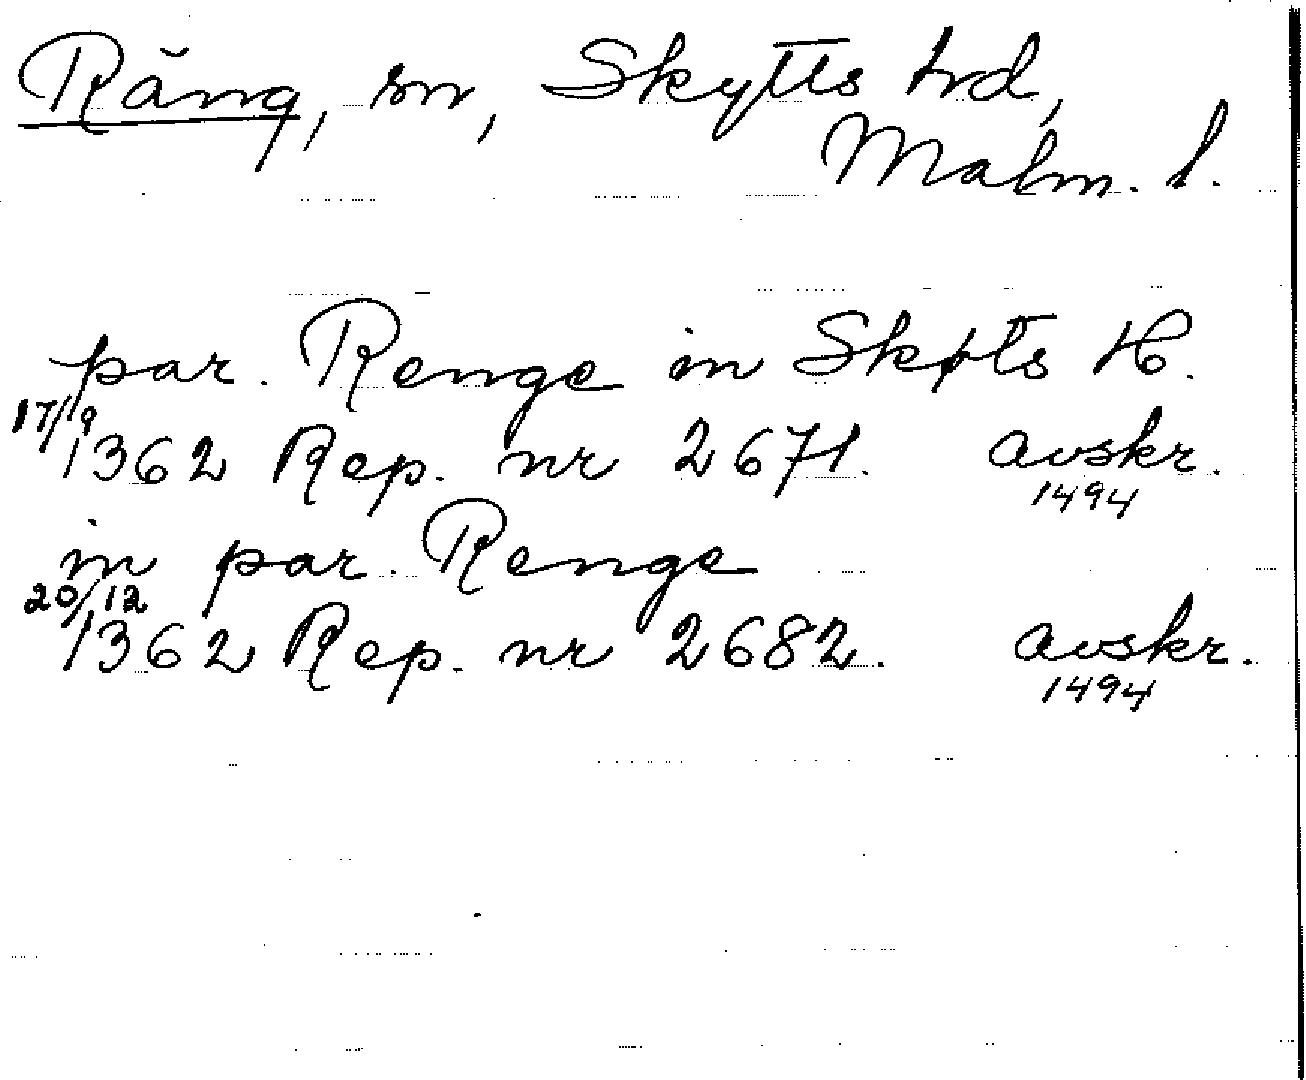 Räng, sn, Skytts hd,
Malm. l.
par. Renge in Skøts H.
17/9
1362 Rep. nr 2671. avskr.
1494
in par. Renge
20/12
1362 Rep. nr 2682. avskr.
1494